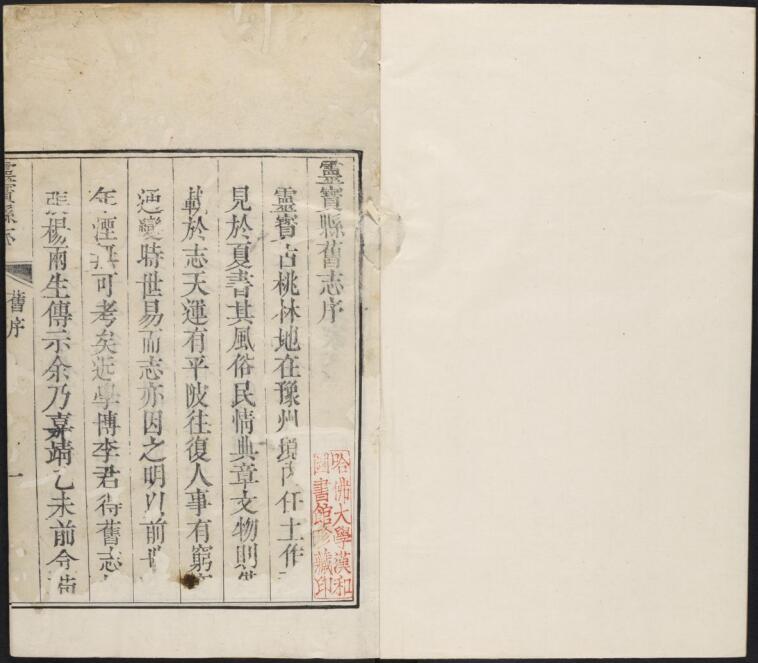 靈寶縣舊志序
靈寶古桃林地在豫州 任土作
見於夏書其風俗民情典章文物則
載於志天運有平陂往復人事有窮
通變時世易而志亦因之明以前
年湮 可考矣近學博李君得舊志
張楊兩生傳示余乃嘉靖乙未前令
靈寶縣志
舊序
一
哈佛大學漢和
圖書館珍藏印